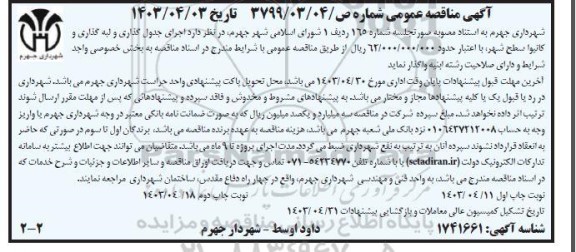 آگهی مناقصه عمومی شماره ص/۳۷۹۹/۰۳/۰۴ تاریخ ۱۴۰۳/۰۴/۰۳
شهرداری جهرم
شهرداری جهرم به استناد مصوبه صورتجلسه شماره ۱۶۵ ردیف ۱ شورای اسلامی شهر جهرم، در نظر دارد اجرای جدول گذاری و لبه گذاری و
کانیوا سطح شهر، با اعتبار حدود ۶۲/۰۰۰/۰۰۰/۰۰۰ ریال از طریق مناقصه عمومی با شرایط مندرج در اسناد مناقصه به بخش خصوصی واجد
شرایط و دارای صلاحیت رشته ابنیه واگذار نماید
آخرین مهلت قبول پیشنهادات پایان وقت اداری مورخ ۱۴۰۳/۰۴/۳۰ می باشد. محل تحویل پاکت پیشنهادی واحد حراست شهرداری جهرم می باشد. شهرداری
در رد یا قبول یک یا کلیه پیشنهادها مجاز و مختار می باشد. به پیشنهادهای مشروط و مخدوش و فاقد سپرده و پیشنهادهائی که پس از مهلت مقرر ارسال شوند
ترتیب اثر داده نخواهد شد. مبلغ سپرده شرکت در مناقصه سه میلیارد و یکصد میلیون ریال که به صورت ضمانت نامه بانکی معتبر در وجه شهرداری جهرم یا واریز
وجه به حساب ۰۱۰۶۴۳۷۲۱۲۰۰۸ نزد بانک ملی شعبه جهرم می باشد. هزینه مناقصه به عهده برنده مناقصه می باشد. برندگان اول تا سوم در صورتی که حاضر
به انعقاد قرارداد نشوند سپرده آنان به ترتیب به نفع شهرداری ضبط می گردد. مدت اجرای پروژه تا ۹ ماه می باشد. متقاضیان می توانند جهت اطلاع بیشتر به سامانه
تدارکات الکترونیک دولت (setadiran.ir) یا با شماره تلفن ۵۴۲۳۴۷۷۰-۰۷۱ تماس و جهت دریافت اوراق مناقصه و سایر اطلاعات و جزئیات و شرح خدمات که
در اسناد مناقصه مندرج می باشد، به واحد فنی و مهندسی شهرداری جهرم، واقع در چهار راه دفاع مقدس، ساختمان شهرداری مراجعه نمایند.
نوبت چاپ اول ۱۴۰۳/۰۴/۱۱ نوبت چاپ دوم ۱۴۰۳/۰۴/۱۸
تاریخ تشکیل کمیسیون عالی معاملات و بازگشایی پیشنهادات ۱۴۰۳/۰۴/۳۱
شناسه آگهی: ۱۷۴۱۶۶۱ داود اوسط - شهردار جهرم ۲-۲